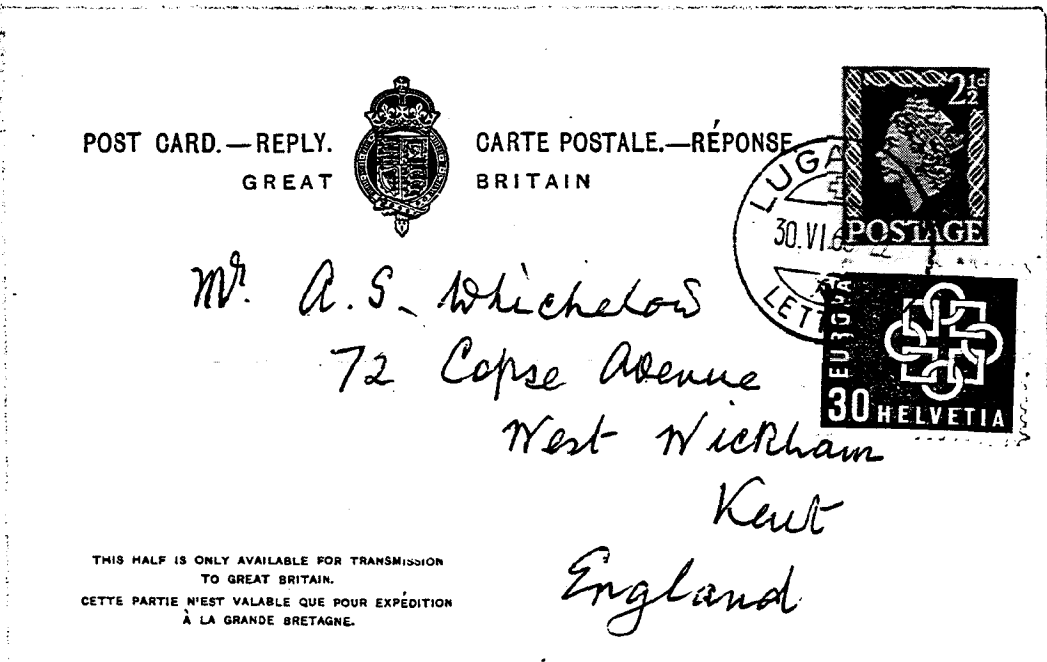 POST CARD.—REPLY. CARTE POSTALE.—RÉPONSE
GREAT BRITAIN
2½d
POSTAGE
30.VI.6
EUROPA
30 HELVETIA
Mr. A. S. Whichelow
72 Copse Avenue
West Wickham
Kent
England
THIS HALF IS ONLY AVAILABLE FOR TRANSMISSION
TO GREAT BRITAIN.
CETTE PARTIE N'EST VALABLE QUE POUR EXPÉDITION
À LA GRANDE BRETAGNE.